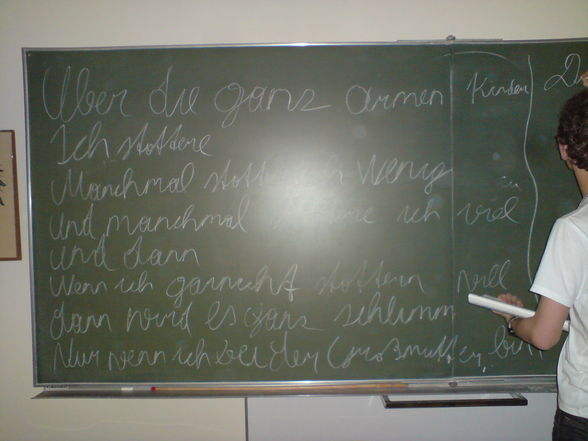 Über die ganz armen Kinder
Ich stottere
Manchmal stottere ich wenig
und manchmal stottere ich viel
und dann
Wenn ich garnicht stottern will
dann wird es ganz schlimm
Nur wenn ich bei der Großmutter bin